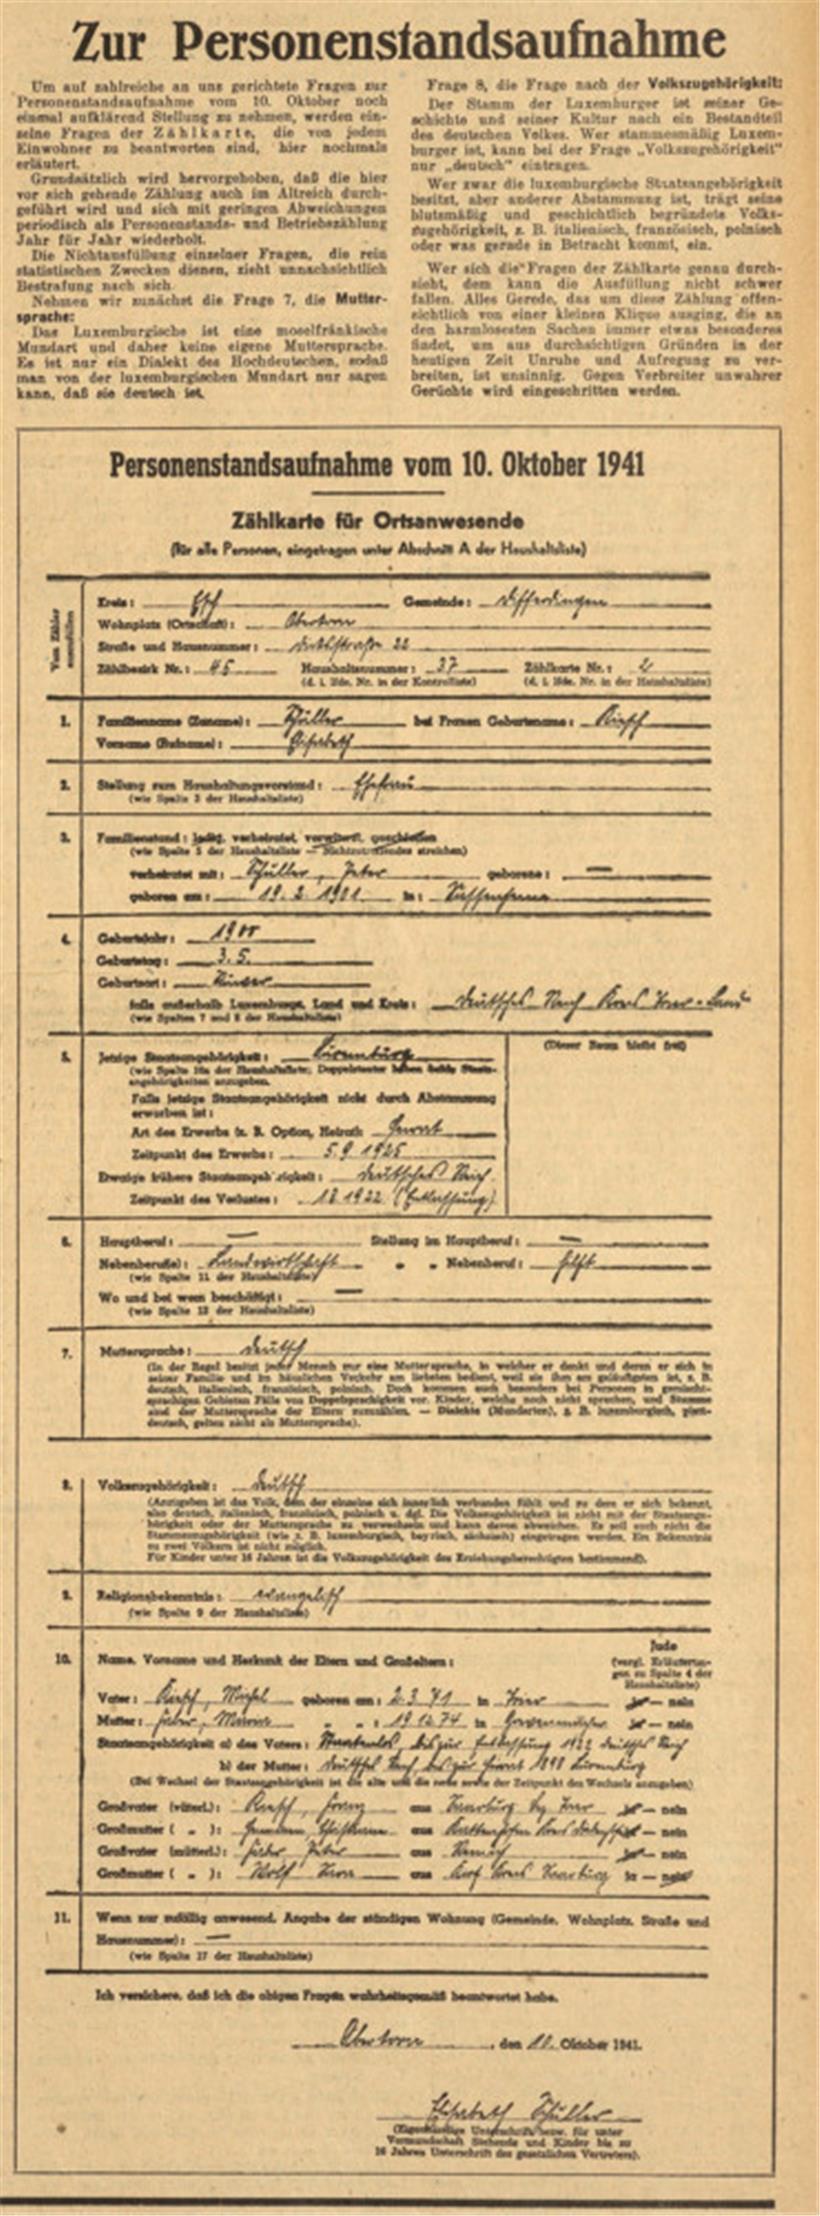 Zur Personenstandsaufnahme
Um auf zahlreiche an uns gerichtete Fragen zur
Personenstandsaufnahme vom 10. Oktober noch
einmal aufklärend Stellung zu nehmen, werden ein-
zelne Fragen der Zählkarte, die von jedem
Einwohner zu beantworten sind, hier nochmals
erläutert.
Grundsätzlich wird hervorgehoben, daß die hier
vor sich gehende Zählung auch im Altreich durch-
geführt wird und sich mit geringen Abweichungen
periodisch als Personenstands- und Betriebszählung
Jahr für Jahr wiederholt.
Die Nichtausfüllung einzelner Fragen, die rein
statistischen Zwecken dienen, zieht unnachsichtlich
Bestrafung nach sich
Nehmen wir zunächst die Frage 7, die Mutter-
sprache:
Das Luxemburgische ist eine moselfränkische
Mundart und daher keine eigene Muttersprache.
Es ist nur ein Dialekt des Hochdeutschen, sodaß
man von der luxemburgischen Mundart nur sagen
kann, daß sie deutsch ist.
Frage 8, die Frage nach der Volkszugehörigkeit:
Der Stamm der Luxemburger ist seiner Ge-
schichte und seiner Kultur nach ein Bestandteil
des deutschen Volkes. Wer stammesmäßig Luxem-
burger ist, kann bei der Frage „Volkszugehörigkeit“
nur „deutsch“ eintragen.
Wer zwar die luxemburgische Staatsangehörigkeit
besitzt, aber anderer Abstammung ist, trägt seine
blutsmäßig und geschichtlich begründete Volks-
zugehörigkeit, z. B. italienisch, französisch, polnisch
oder was gerade in Betracht kommt, ein.
Wer sich die Fragen der Zählkarte genau durch-
sieht, dem kann die Ausfüllung nicht schwer
fallen. Alles Gerede, das um diese Zählung offen-
sichtlich von einer kleinen Klique ausging, die an
den harmlosesten Sachen immer etwas besonderes
findet, um aus durchsichtigen Gründen in der
heutigen Zeit Unruhe und Aufregung zu ver-
breiten, ist unsinnig. Gegen Verbreiter unwahrer
Gerüchte wird eingeschritten werden.
Personenstandsaufnahme vom 10. Oktober 1941
Zählkarte für Ortsanwesende
(für alle Personen, eingetragen unter Abschnitt A der Haushaltsliste)
Vom Zähler
auszufüllen
Kreis: Esch Gemeinde: Differdingen
Wohnplatz (Ortschaft): Oberkorn
Straße und Hausnummer: 22
Zählbezirk Nr.: 45 Haushaltsnummer: 37 Zählkarte Nr.: 2
(d. i. lfde. Nr. in der Kontrolliste) (d. i. lfde. Nr. in der Haushaltsliste)
1. Familienname (Zuname): Schüller bei Frauen Geburtsname:
Vorname (Rufname): Elisabeth
2. Stellung zum Haushaltungsvorstand: Ehefrau
(wie Spalte 3 der Haushaltsliste)
3. Familienstand: ledig, verheiratet, verwitwet, geschieden
(wie Spalte 5 der Haushaltsliste — Nichtzutreffendes streichen)
verheiratet mit: Schüller, Peter geborene: —
geboren am: 19. 2. 1901 in:
4. Geburtsjahr: 1900
Geburtstag: 3. 5.
Geburtsort:
falls außerhalb Luxemburgs, Land und Kreis: deutsches Reich Kreis Trier-Land
(wie Spalten 7 und 8 der Haushaltsliste)
5. Jetzige Staatsangehörigkeit: Luxemburg
(wie Spalte 10a der Haushaltsliste; Doppelstaater haben beide Staats-
angehörigkeiten anzugeben.
Falls jetzige Staatsangehörigkeit nicht durch Abstammung
erworben ist:
Art des Erwerbs (z. B. Option, Heirat): Heirat
Zeitpunkt des Erwerbs: 5. 9. 1925
Etwaige frühere Staatsangehörigkeit: deutsches Reich
Zeitpunkt des Verlustes: 1922 (Entlassung)
(Dieser Raum bleibt frei)
6. Hauptberuf: — Stellung im Hauptberuf: —
Nebenberuf(e): Landwirtschaft „ „ Nebenberuf: hilft
(wie Spalte 11 der Haushaltsliste)
Wo und bei wem beschäftigt: —
(wie Spalte 12 der Haushaltsliste)
7. Muttersprache: deutsch
(In der Regel besitzt jeder Mensch nur eine Muttersprache, in welcher er denkt und deren er sich in
seiner Familie und im häuslichen Verkehr am liebsten bedient, weil sie ihm am geläufigsten ist, z. B.
deutsch, italienisch, französisch, polnisch. Doch kommen auch besonders bei Personen in gemischt-
sprachigen Gebieten Fälle von Doppelsprachigkeit vor. Kinder, welche noch nicht sprechen, und Stumme
sind der Muttersprache der Eltern zuzuzählen. — Dialekte (Mundarten), z. B. luxemburgisch, platt-
deutsch, gelten nicht als Muttersprache).
8. Volkszugehörigkeit: deutsch
(Anzugeben ist das Volk, dem der einzelne sich innerlich verbunden fühlt und zu dem er sich bekennt,
also deutsch, italienisch, französisch, polnisch u. dgl. Die Volkszugehörigkeit ist nicht mit der Staatsange-
hörigkeit oder der Muttersprache zu verwechseln und kann davon abweichen. Es soll auch nicht die
Stammeszugehörigkeit (wie z. B. luxemburgisch, bayrisch, sächsisch) eingetragen werden. Ein Bekenntnis
zu zwei Völkern ist nicht möglich.
Für Kinder unter 16 Jahren ist die Volkszugehörigkeit des Erziehungsberechtigten bestimmend).
9. Religionsbekenntnis: evangelisch
(wie Spalte 9 der Haushaltsliste)
Jude
(vergl. Erläuterun-
gen zu Spalte 4 der
Haushaltsliste)
10. Name, Vorname und Herkunft der Eltern und Großeltern:
Vater: geboren am: 2. 3. 71 in Trier ja — nein
Mutter: „ „ : 19. 12. 74 in Grevenmacher ja — nein
Staatsangehörigkeit a) des Vaters: Staatenlos, bis zur Entlassung 1922 deutsches Reich
b) der Mutter: deutsches Reich, bis zur Heirat 1898 Luxemburg
(Bei Wechsel der Staatsangehörigkeit ist die alte und die neue sowie der Zeitpunkt des Wechsels anzugeben)
Großvater (väterl.): aus Saarburg bez Trier ja — nein
Großmutter ( „ ): aus ja — nein
Großvater (mütterl.): Peter aus Remich ja — nein
Großmutter ( „ ): Wolf aus Kreis Saarburg ja — nein
11. Wenn nur zufällig anwesend, Angabe der ständigen Wohnung (Gemeinde, Wohnplatz, Straße und
Hausnummer): —
(wie Spalte 17 der Haushaltsliste)
Ich versichere, daß ich die obigen Fragen wahrheitsgemäß beantwortet habe.
Oberkorn, den 10. Oktober 1941.
Elisabeth Schüller
(Eigenhändige Unterschrift bezw. für unter
Vormundschaft Stehende und Kinder bis zu
16 Jahren Unterschrift des gesetzlichen Vertreters).